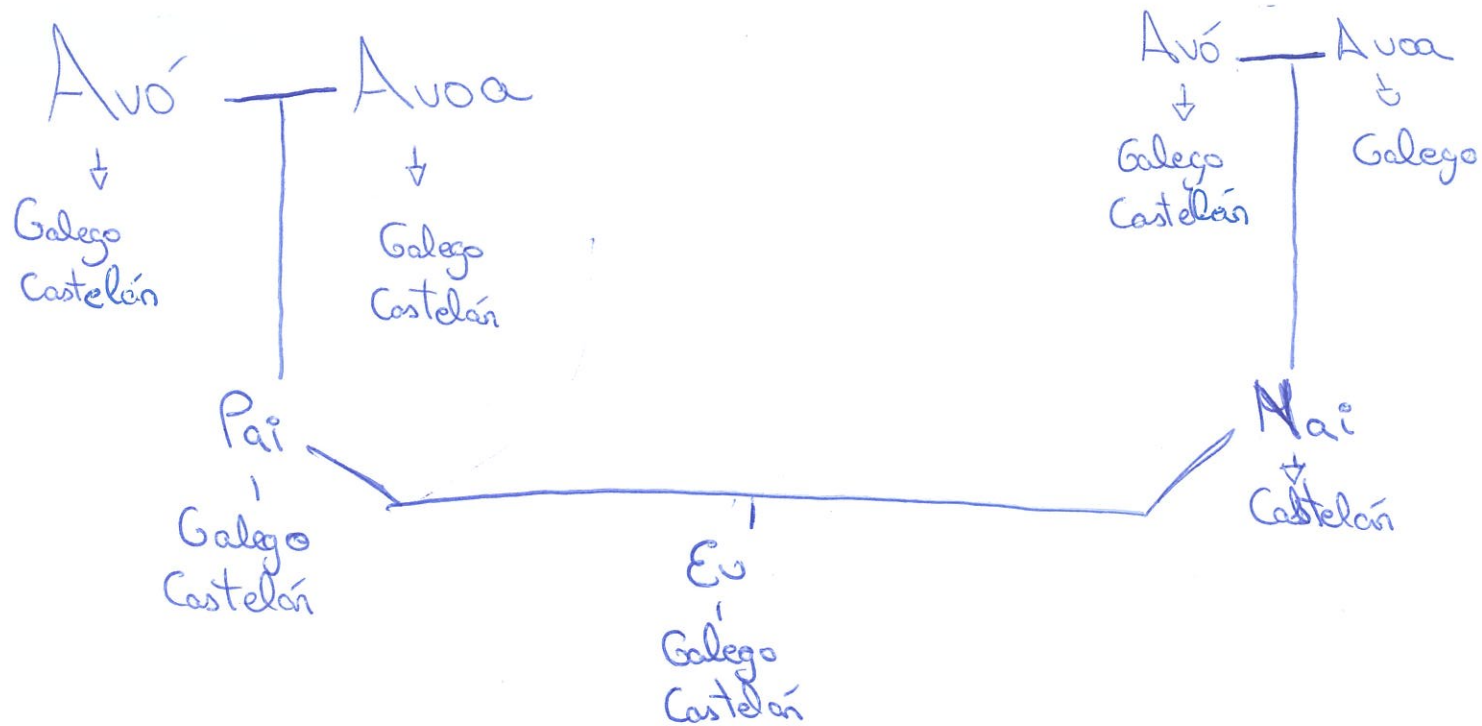 Avó Avoa
Galego
Castelán
Galego
Castelán
Avó Avoa
Galego
Castelán
Galego
Pai
Galego
Castelán
Nai
Castelán
Eu
Galego
Castelán